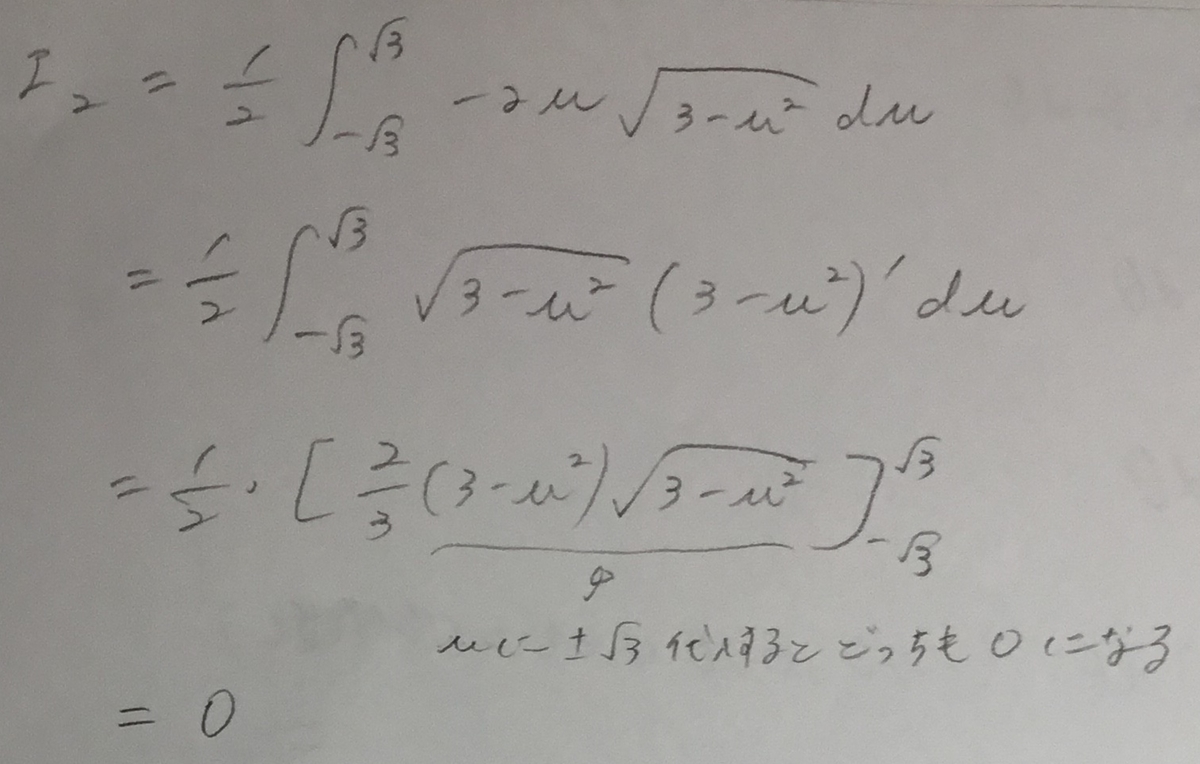 I₂ = 1/2 ∫_{-√3}^{√3} -2u √(3-u²) du
= 1/2 ∫_{-√3}^{√3} √(3-u²) (3-u²)' du
= 1/2 · [ 2/3 (3-u²) √(3-u²) ]_{-√3}^{√3}
uに ±√3 代入すると どっちも 0 になる
= 0